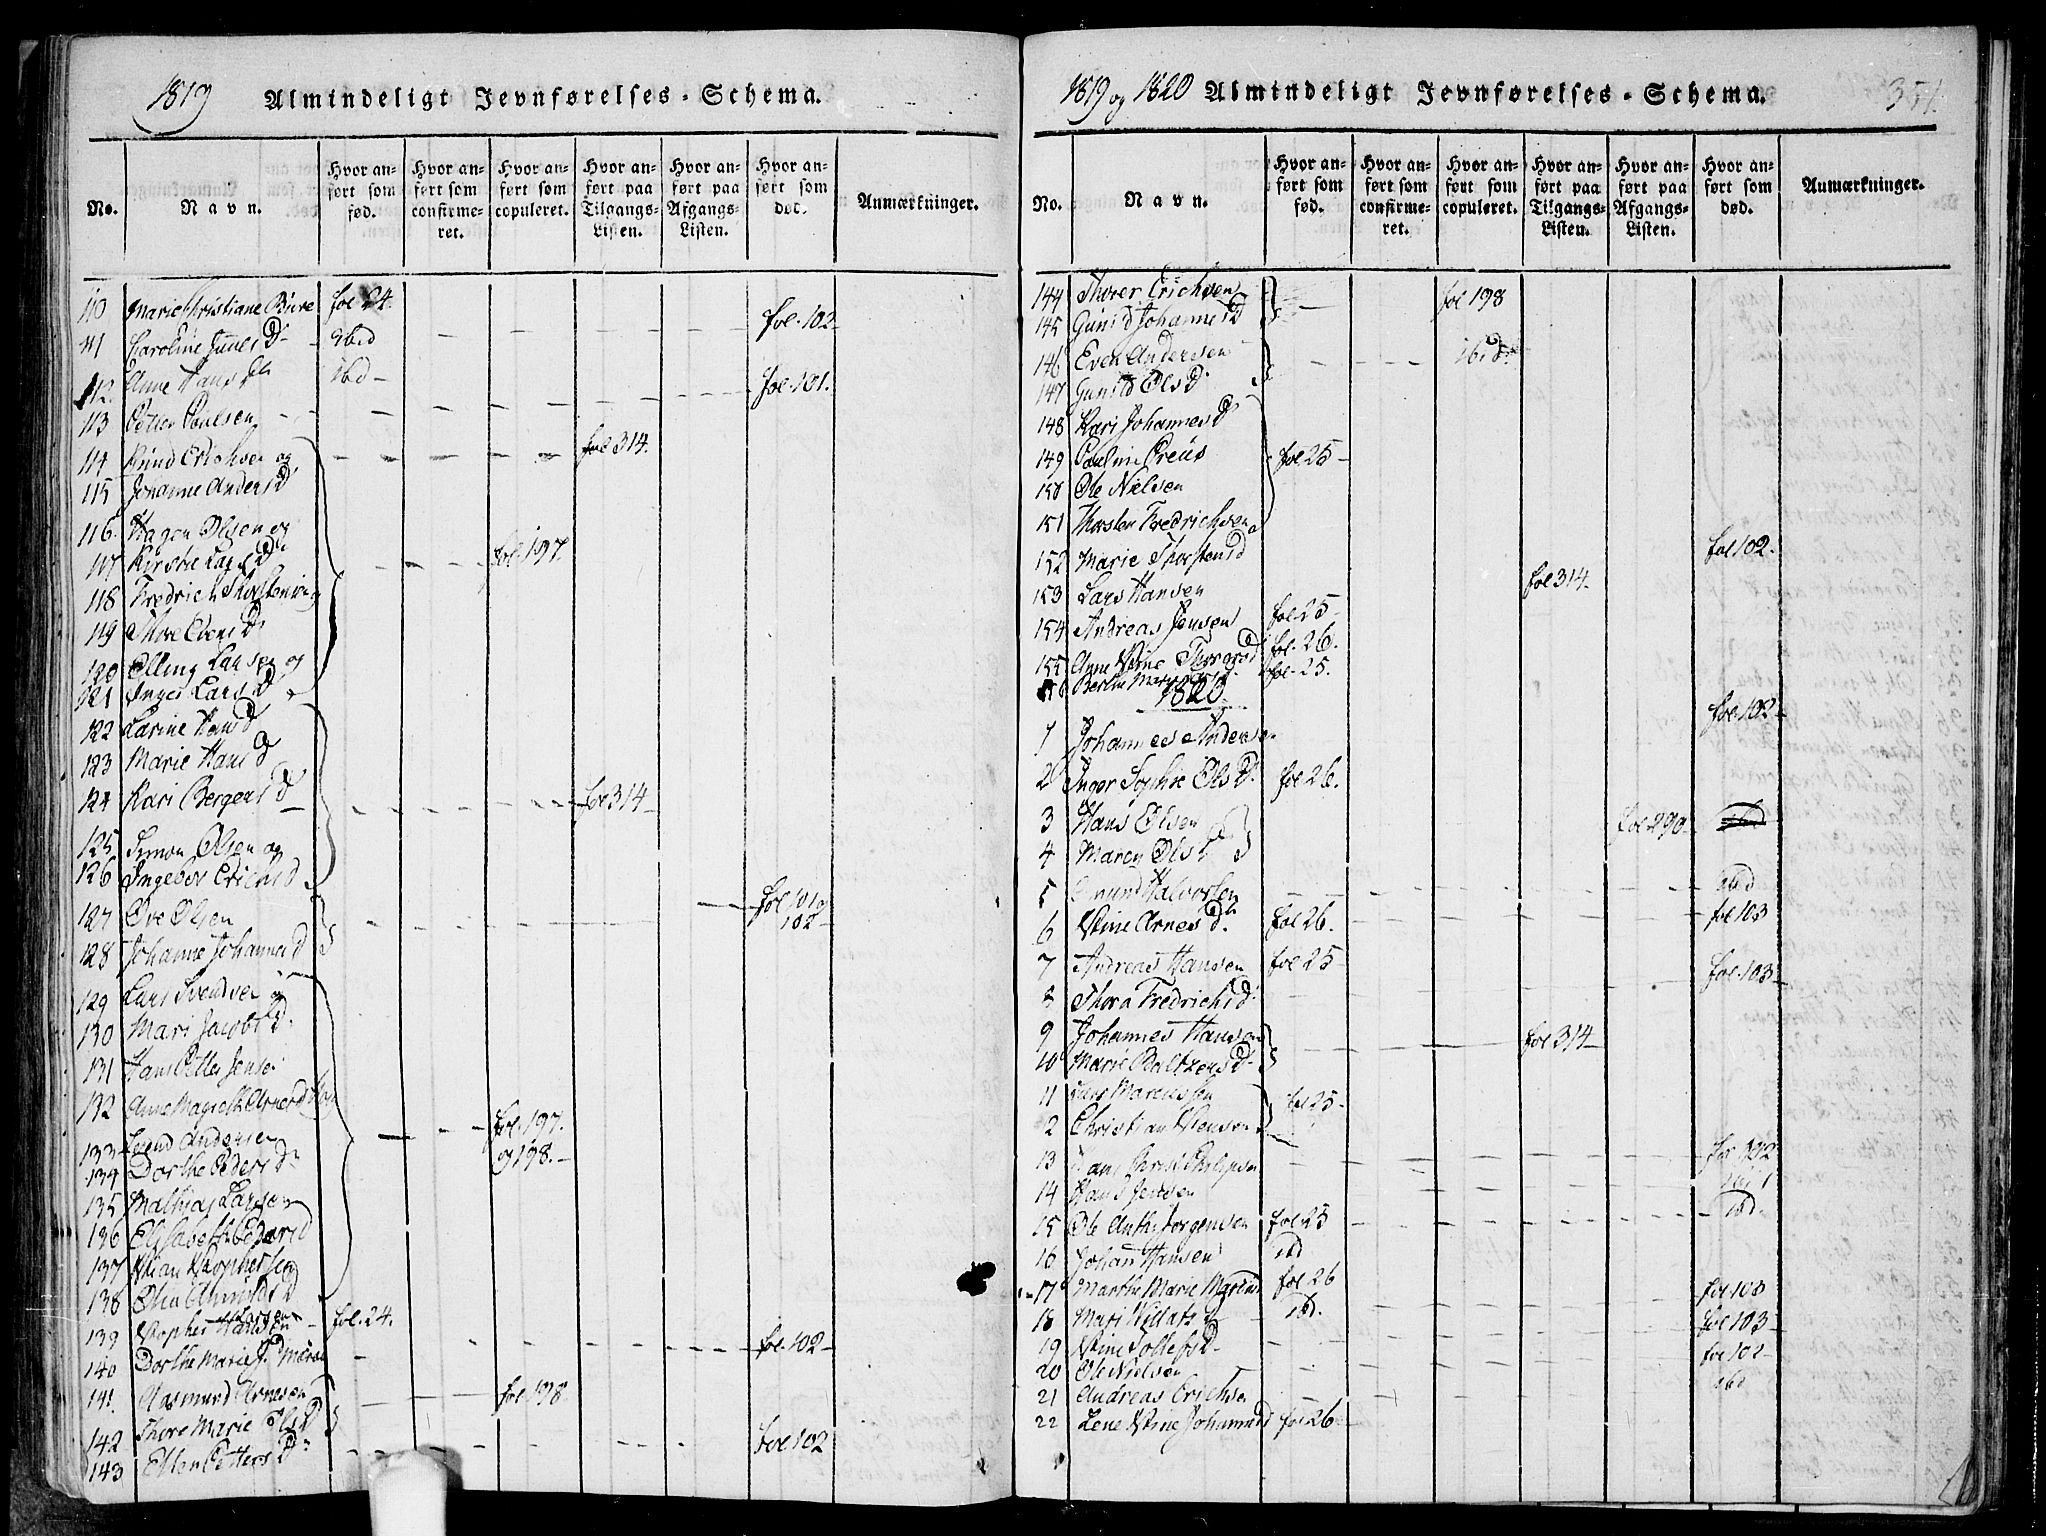 1819 Almindeligt Jevnførelses-Schema.
No.
Navn.
Hvor an-
ført som
fød.
Hvor an-
ført som
confirme-
ret.
Hvor an-
ført som
copuleret.
Hvor an-
ført paa
Tilgangs-
Listen.
Hvor an-
ført paa
Afgangs-
Listen.
Hvor an-
ført som
død.
Anmærkninger.
110 Marie Christiane fol 24.
111 Caroline D Ibid fol. 102
112. Anne Hans D Ibd fol. 101.
113 Petter Poulsen
114 Knud Erichsen og fol 314.
115 Johanne Anders D
116. Hagen Olsen og
117 Kirstie Lars D fol. 197.
118 Fredrich Thorstensen og
119 Thore Evens D
120 Elling Larsen og
121 Inger Lars D
122 Karine Hans D
123 Marie Hans D
124 Kari Bergers D fol 314
125 Simon Olsen og
126 Ingebor Erichs D
127 Ove Olsen fol 101 og
102
128 Johanne Johannes D
129 Lars Svendsen og
130 Mari Jacobs D.
131 Hans Petter Jensen
132 Anne Magreth Arnes D
133 Svend Andersen fol. 197.
134 Dorthe Peders D og 198.
135 Mathias Larsen
136 Elisabeth Peders D
137
138 D
139 fol. 24.
140 Dorthe Marie fol. 102
141. Aasmund Arnesen fol 198.
142 Thore Marie Ols D
143 Ellen Petters D fol 102
1819 og 1820 Almindeligt Jevnførelses-Schema. 351.
No.
Navn.
Hvor an-
ført som
fød.
Hvor an-
ført som
confirme-
ret.
Hvor an-
ført som
copuleret.
Hvor an-
ført paa
Tilgangs-
Listen.
Hvor an-
ført paa
Afgangs-
Listen.
Hvor an-
ført som
død.
Anmærkninger.
144 Thorer Erichsen fol 198
145 Gunild Johannes D
146 Even Andersen ibid
147 Gunild Ols D
148 Kari Johannes D
149 Pauline Preus fol 25
150 Ole Nielsen
151 Thorsten Fredrichsen
152 Marie Thorstens D fol 102.
153 Lars Hansen fol 314.
154 Andreas Jensen fol 25
155 Anne Stine fol. 26.
156 fol. 25.
1820.
1 Johannes Andersen fol. 102
2 Inger Sophie Ols D. fol 26.
3 Hans Olsen fol 290.
4 Maren Ols D
5 Halvorsen ibid
6 Stine Arnes D. fol 26. fol 103
7 Andreas Hansen fol 25
8 Thora Fredrichs D fol. 103
9 Johannes Hansen
10 Marie Baltzers D. fol 314
11 Marcussen
2 Christian fol 25
13 fol 102
14 Hans Jensen
15 Ole Anth: Jørgensen fol 25 ibd.
16 Johan Hansen ibd
17 Marthe Marie fol 26
18 Mari D ibd. fol 103
19 Stine Tollefs D fol 103
20 Ole Nielsen fol 102
21 Andreas Erichsen ibd
22 Lene Stine Johannes D fol 26